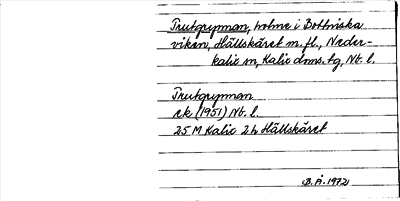 Trutgrynnan, holme i Bottniska
viken, Hällskäret m.fl., Neder-
kalix sn, Kalix doms.tg, Nb. l.
Trutgrynnan
ek (1951) Nb. l.
25 M Kalix 2h Hällskäret
B.Å. 1972